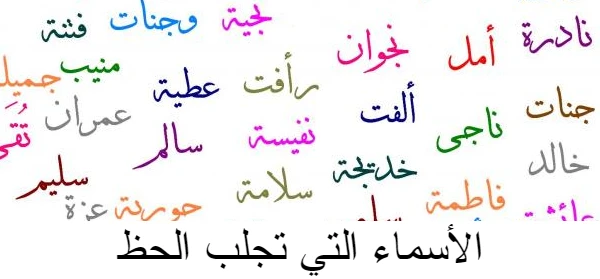 نجية وجنات فتنة
نادرة أمل نجوان
رأفت عطية منيب
جنات ناجى ألفت عمران
خالد خديجة نفيسة سالم
فاطمة سلامة سليم
حورية عزة
الأسماء التي تجلب الحظ